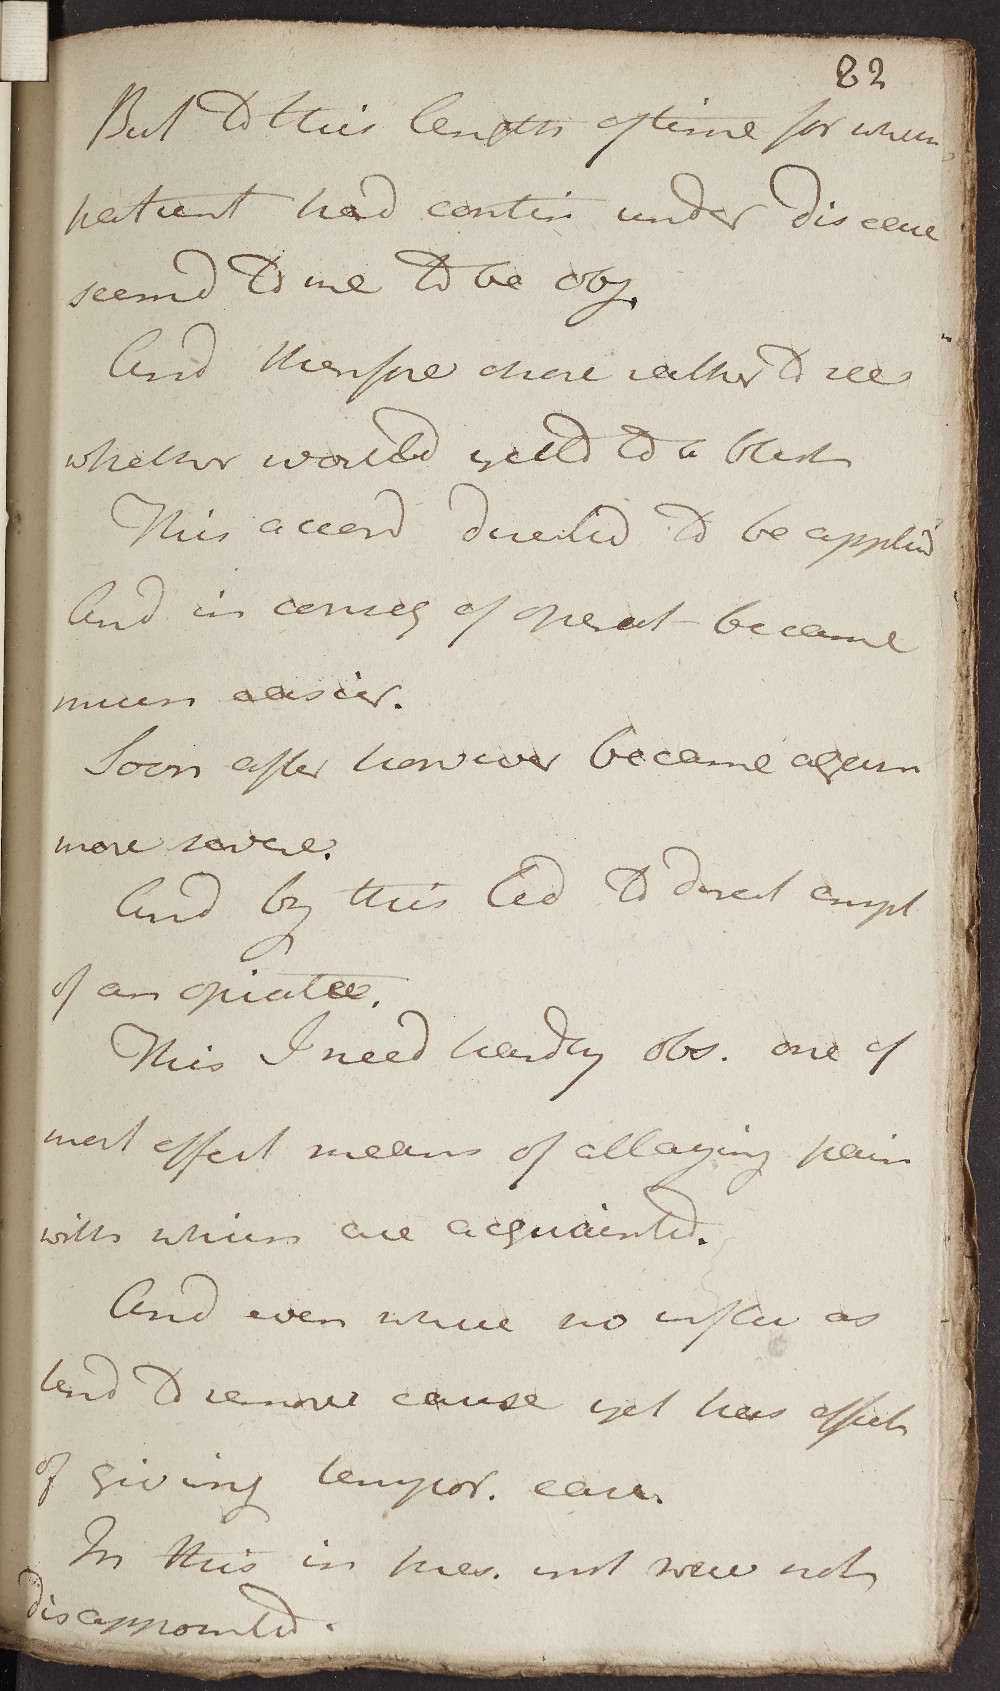 82
But to this length of time for which
patient had contin under disease
seemd to me to be obj.
And therefore chose rather to see
whether would yeild to a blist
This accord directed to be applied
And in conseq of operat became
much easier.
Soon after however became again
more severe.
And by this led to direct empl
of an opiate.
This I need hardly obs. one of
most effect means of allaying pain
with which are acquainted.
And even where no influ as
tend to remove cause yet has effect
of giving tempor. ease.
In this in pres. inst were not
disappointed.